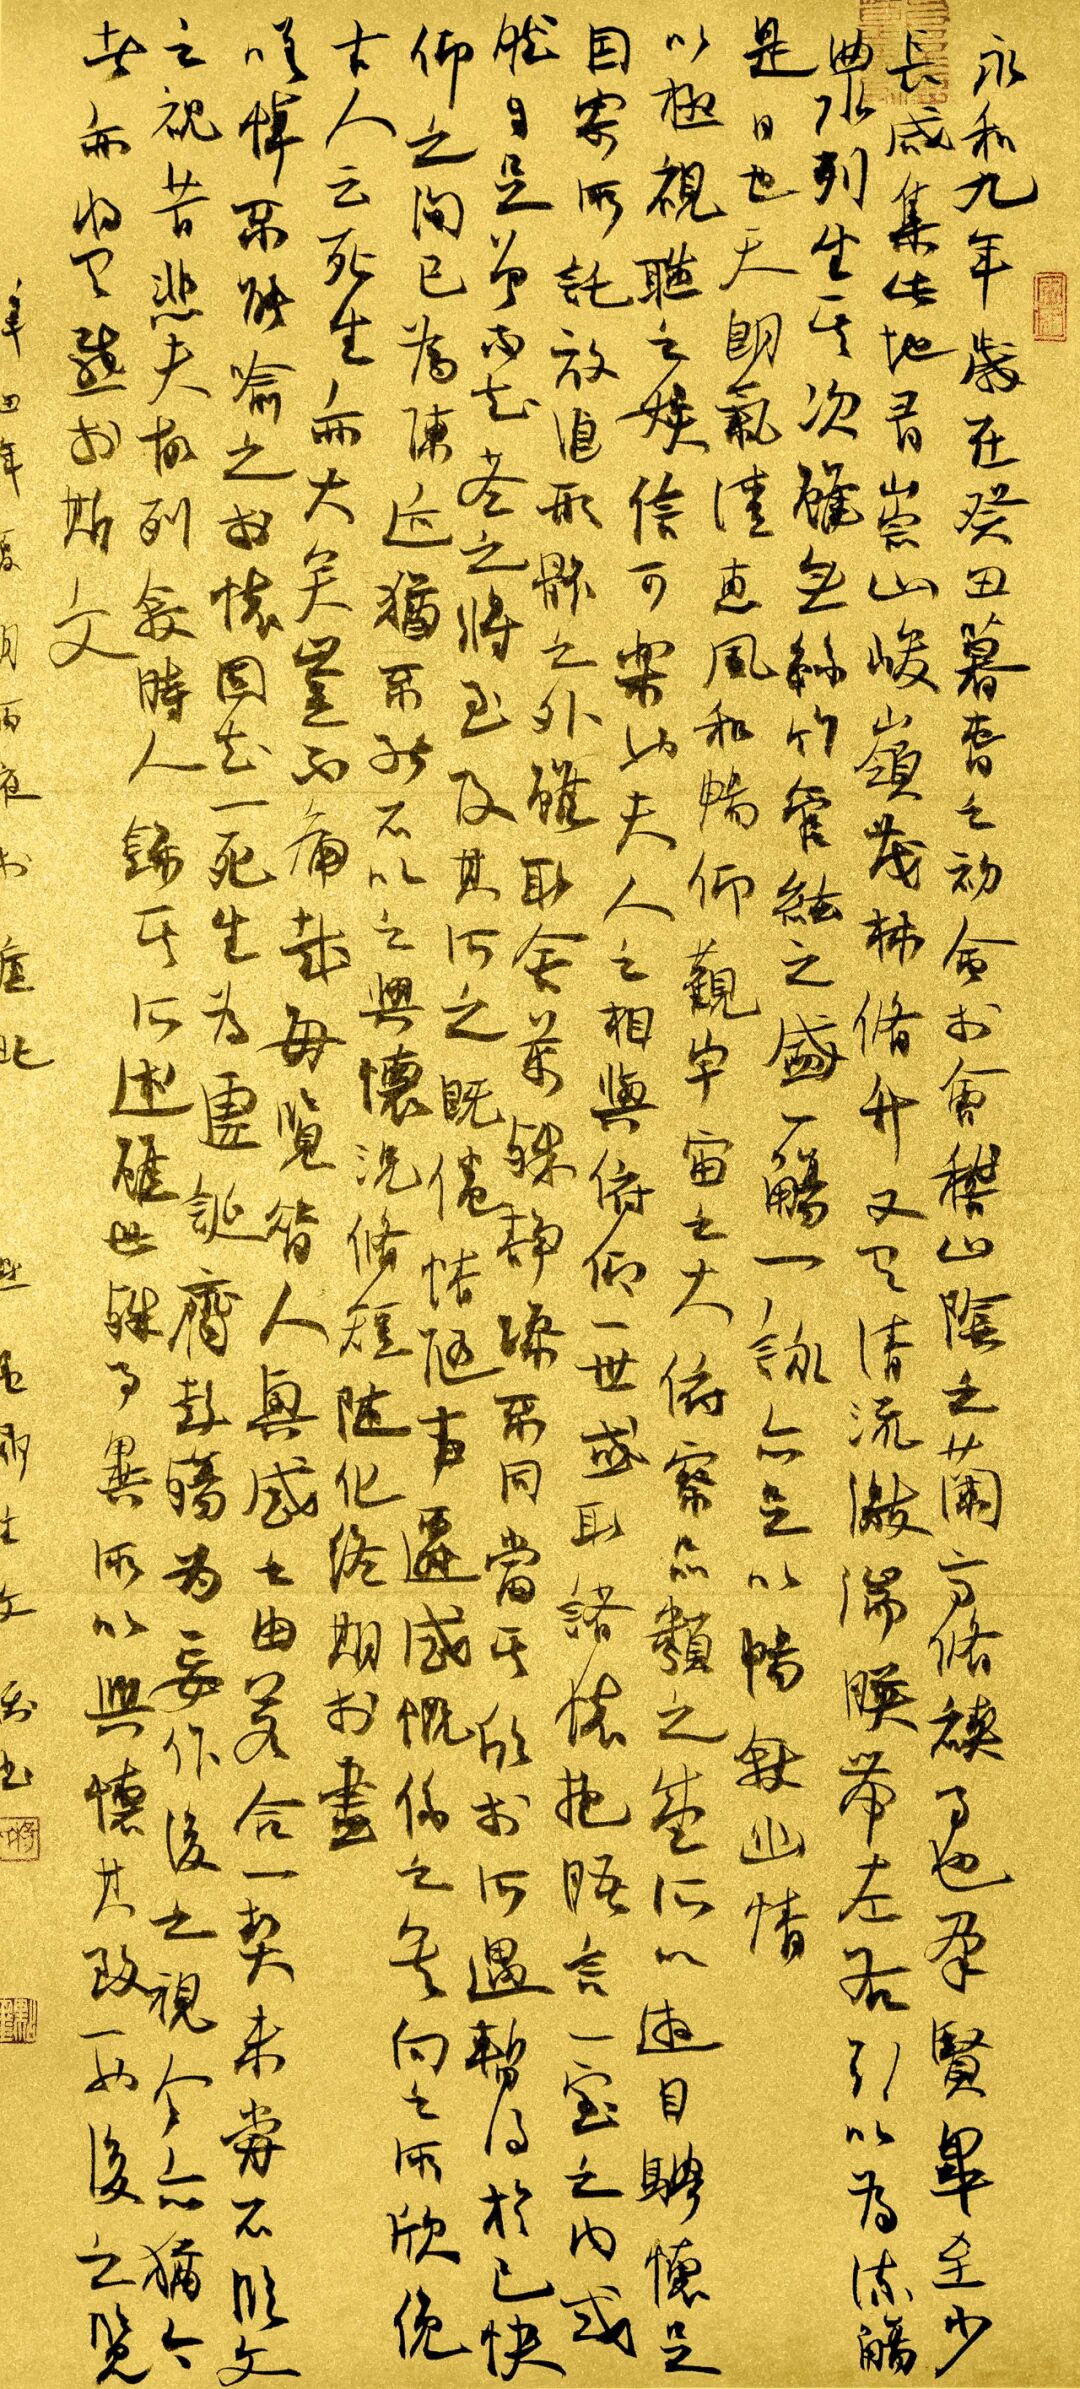 永和九年歲在癸丑暮春之初會於會稽山陰之蘭亭脩禊事也群賢畢至少
長咸集此地有崇山峻嶺茂林脩竹又有清流激湍暎帶左右引以為流觴
曲水列坐其次雖無絲竹管絃之盛一觴一詠亦足以暢敘幽情
是日也天朗氣清惠風和暢仰觀宇宙之大俯察品類之盛所以遊目騁懷足
以極視聽之娛信可樂也夫人之相與俯仰一世或取諸懷抱晤言一室之內或
因寄所託放浪形骸之外雖取舍萬殊靜躁不同當其欣於所遇暫得於己快
然自足曾不知老之將至及其所之既倦情隨事遷感慨係之矣向之所欣俛
仰之間已為陳迹猶不能不以之興懷況脩短隨化終期於盡
古人云死生亦大矣豈不痛哉每覽昔人興感之由若合一契未嘗不臨文
嗟悼不能喻之於懷固知一死生為虛誕齊彭殤為妄作後之視今亦猶今
之視昔悲夫故列敘時人錄其所述雖世殊事異所以興懷其致一也後之覽
者亦將有感於斯文